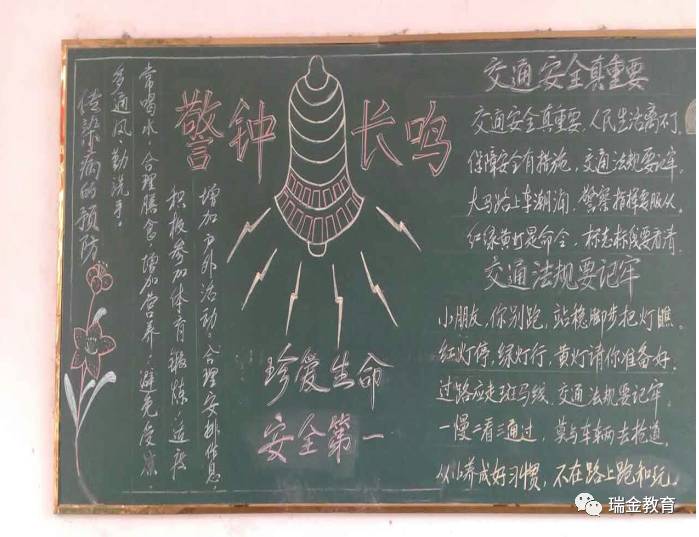 传染病的预防
多通风,勤洗手。
常喝水,合理膳食,增加营养,避免受凉
积极参加体育锻炼,适度
增加户外活动,合理安排休息,
警钟长鸣
珍爱生命
安全第一
交通安全真重要
交通安全真重要,人民生活离不了,
保障安全有措施,交通法规要记牢,
大马路上车潮涌,警察指挥要服从。
红绿黄灯是命令,标志标线要看清
交通法规要记牢
小朋友,你别跑,站稳脚步把灯瞧。
红灯停,绿灯行,黄灯请你准备好。
过路应走斑马线,交通法规要记牢,
一慢二看三通过,莫与车辆去抢道。
从小养成好习惯,不在路上跑和玩。
瑞金教育